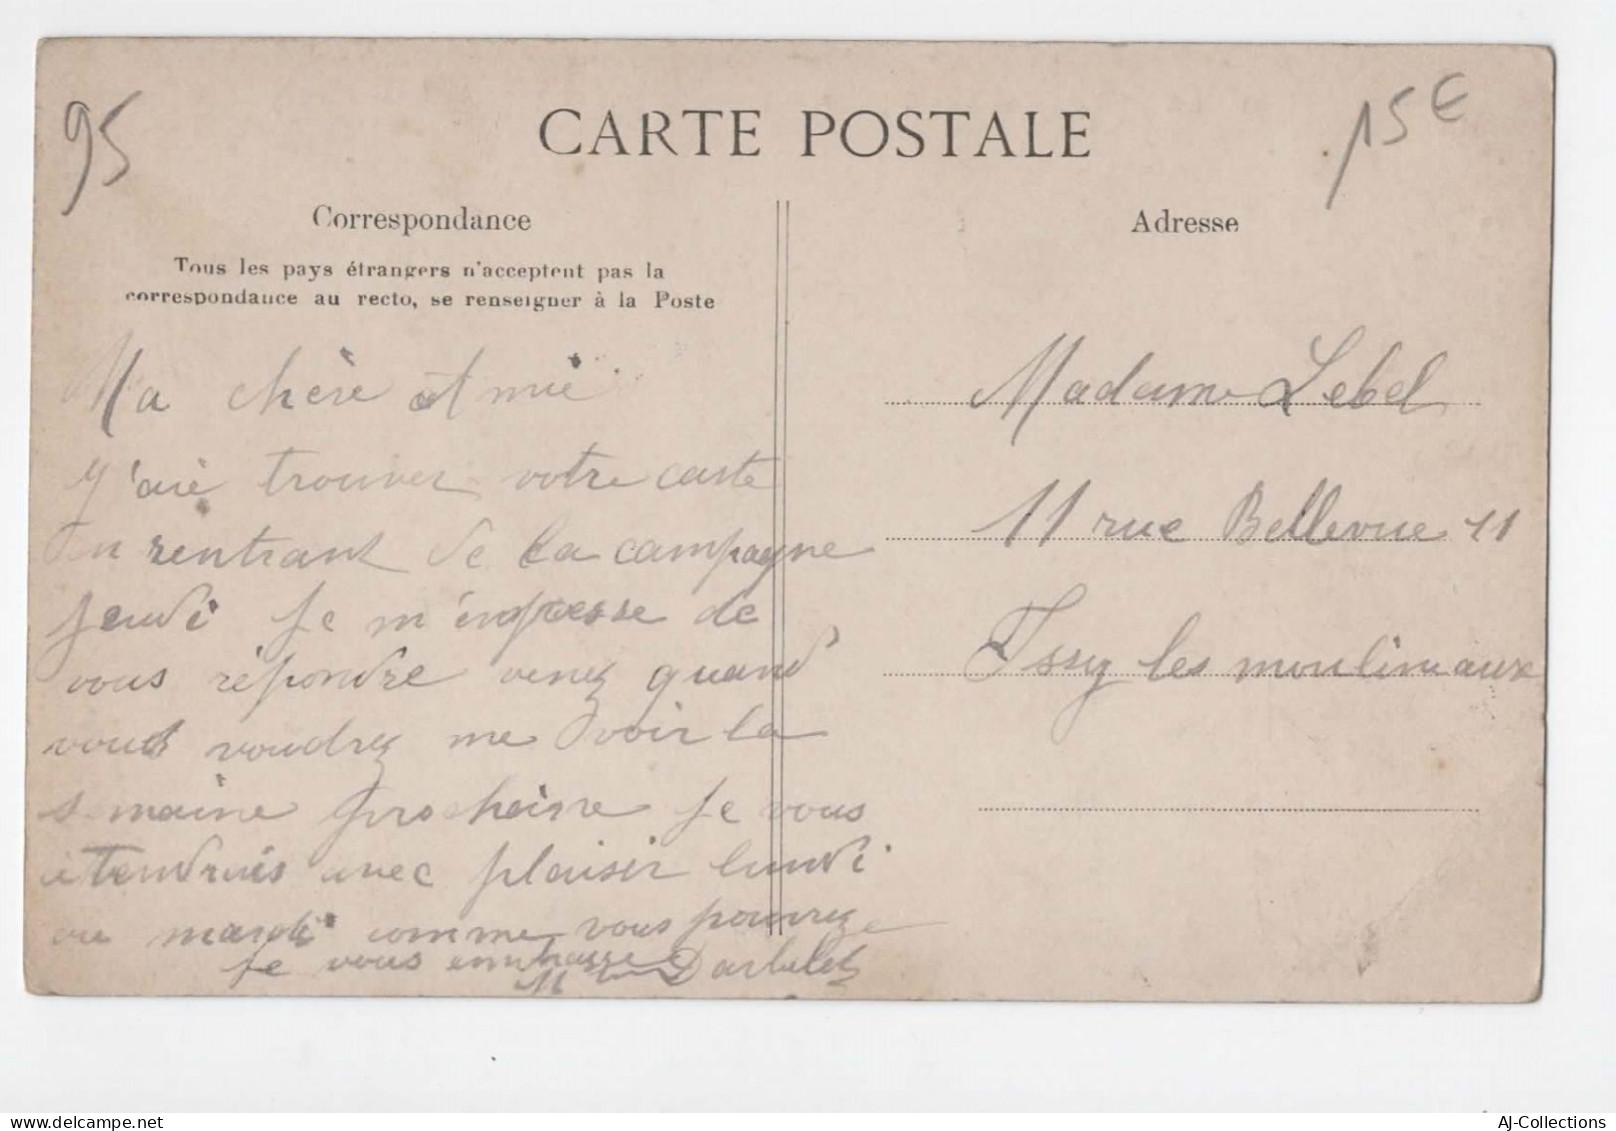 95
15 €
CARTE POSTALE
Correspondance
Tous les pays étrangers n'acceptent pas la
correspondance au recto, se renseigner à la Poste
Ma chère Amie
J'aie trouver votre carte
en rentrant de la campagne
jeudi je m'enpresse de
vous répondre venez quand
vous voudrez me voir la
semaine prochaine je vous
attendrais avec plaisir lundi
ou mardi comme vous pourrez
je vous embrasse
Adresse
Madame Lebel
11 rue Bellevue 11
Issy les moulineaux
AJ-Collections